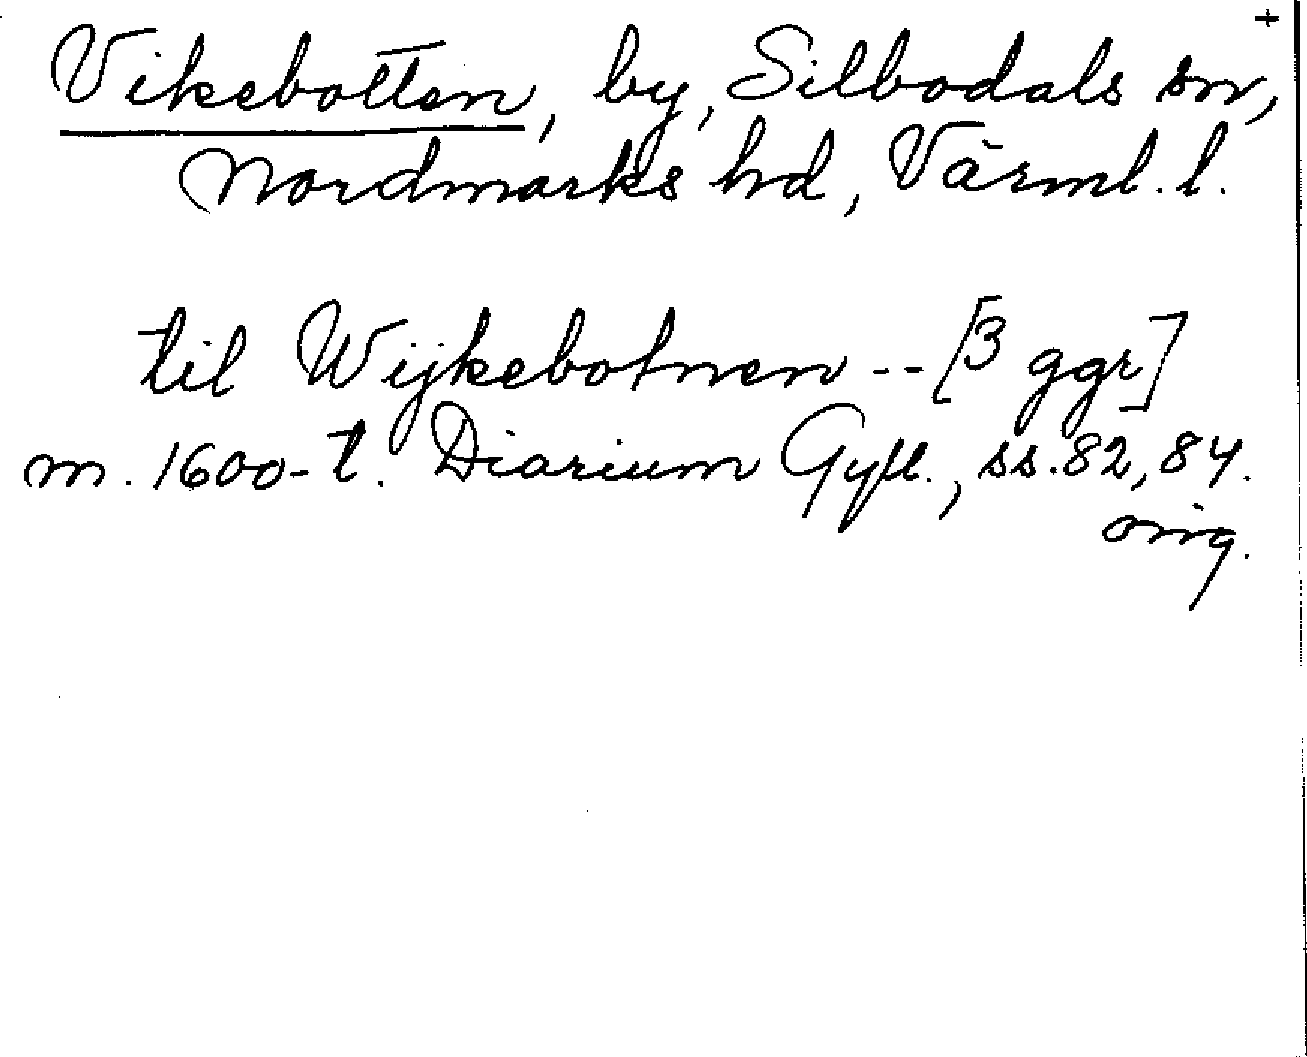 +
Vikebotten, by, Silbodals sn,
Nordmarks hd, Värml. l.
til Wijkebotnen -- [3 ggr]
m. 1600-t. Diarium Gyll., ss. 82, 84.
orig.